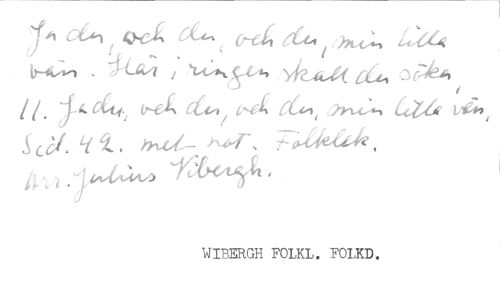 Ja du, och du, och du, min lilla
vän. Här i ringen skall du söka,
11. Ja du, och du, och du, min lilla vän,
Sid. 42. met not. Folklek.
Arr. Julius Vibergh.
WIBERGH FOLKL. FOLKD.